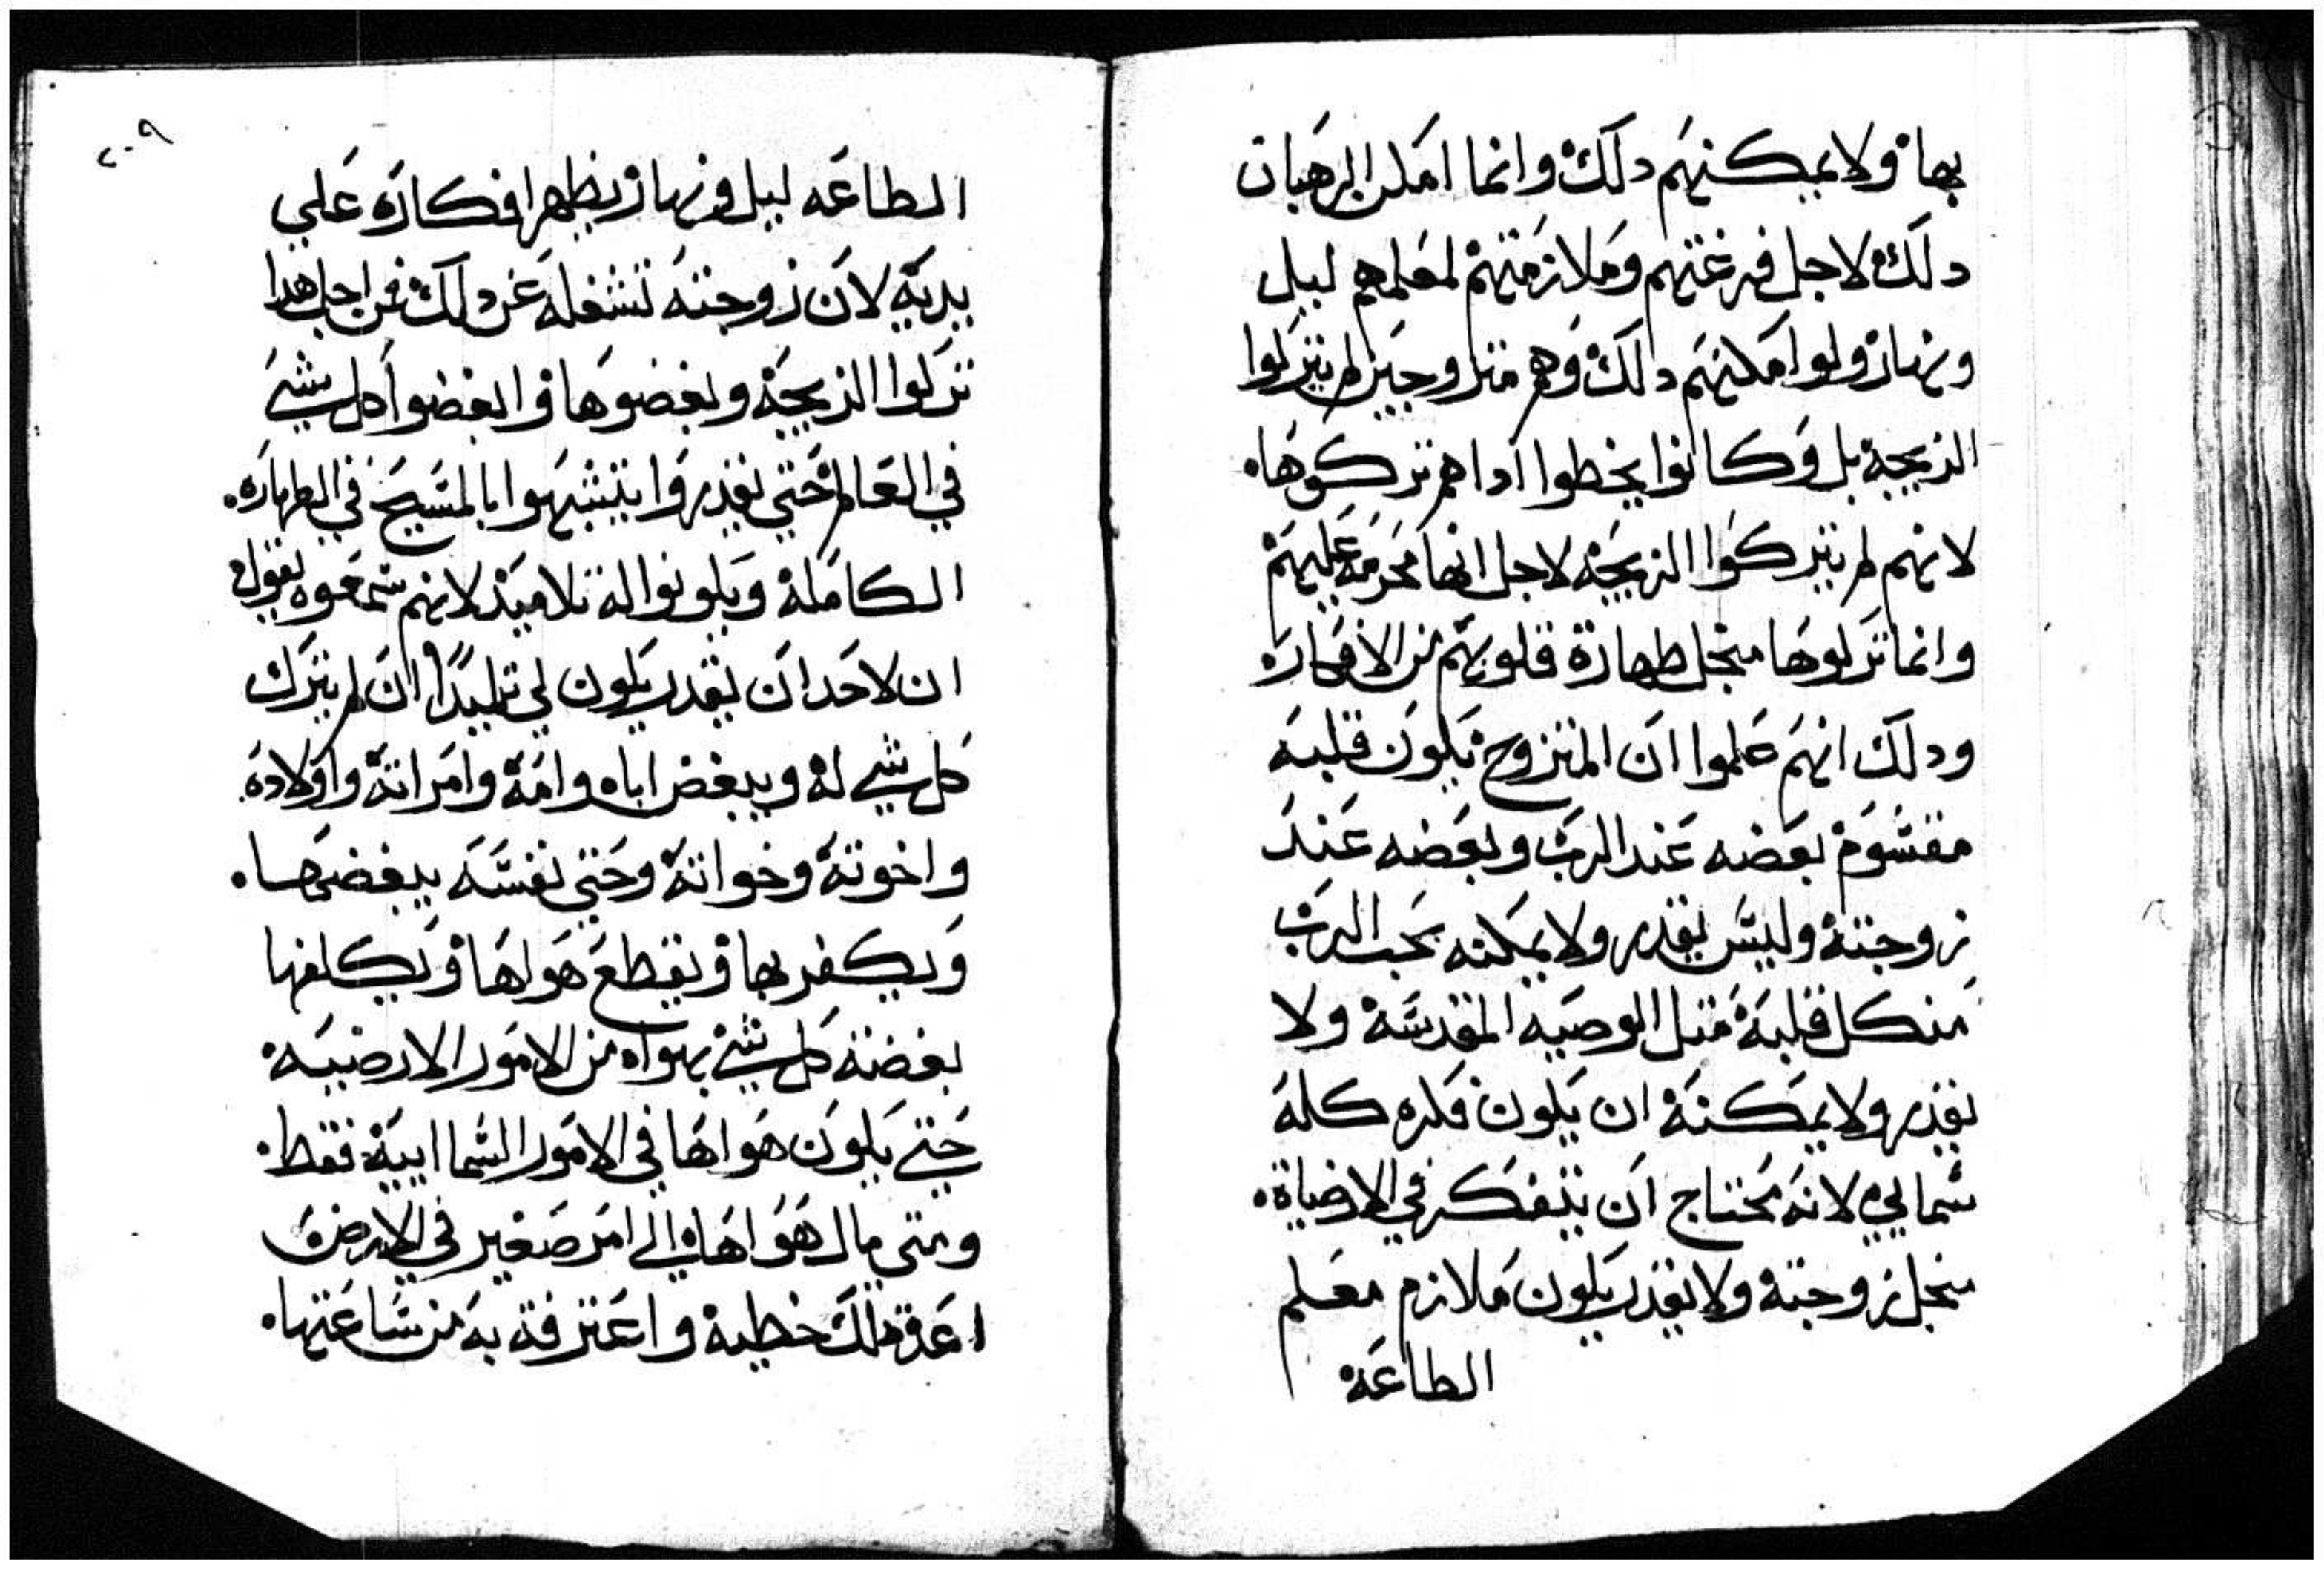 بها ولا يمكنهم دلك وانما امكن الرهبان
دلك لاجل فرغتهم وملازمتهم لمعلمهم ليل
ونهار ولوا امكنهم دالك وهم متزوجين لم يتركوا
الزيجة بل وكانوا يخطوا اداهم تركوها.
لانهم لم يتركوا الزيجة لاجل انها محرمة عليهم
وانما تركوها منجل طهارة قلوبهم من الافكاره
ودلك انهم علموا ان المتزوج يكون قلبه
مقسوم بعضه عند الرب وبعضه عند
زوجته وليس يقدر ولا يمكنه يحب الرب
منكل قلبه متل الوصيه المقدسة ولا
يقدر ولا يمكنه ان يكون فكره كله
سمايي لانه محتاج ان يتفكر في الارضياة.
منجل زوجته ولا يقدر يكون ملازم معلم
الطاعة
٢٠٩
الطاعه ليل ونهار يظهر افكاره علي
يديه لان زوجته تشغله عن دلك فمن اجل هدا
تركوا الزيجة وبغضوها وابغضوا كل شي
في العالم حتي يقدروا يتشبهوا بالمسيح في الطهاره.
الكاملة ويكونوا له تلاميد لانهم سمعوه يقول
ان لاحد ان يقدر يكون لي تلميدا ان لم يترك
كل شي له ويبغض اباه وامه وامراته واولاده.
واخوته وخواته وحتي نفسه يبغضها.
ويكفر بها ويقطع هواها ويكلفها
بغضة كل شي يهواه من الامور الارضية
حتي يكون هواها في الامور السماايية فقط.
ومتي مال هواها الي امر صغير في الارض
اعدة دلك خطية واعترفة به من ساعتها.